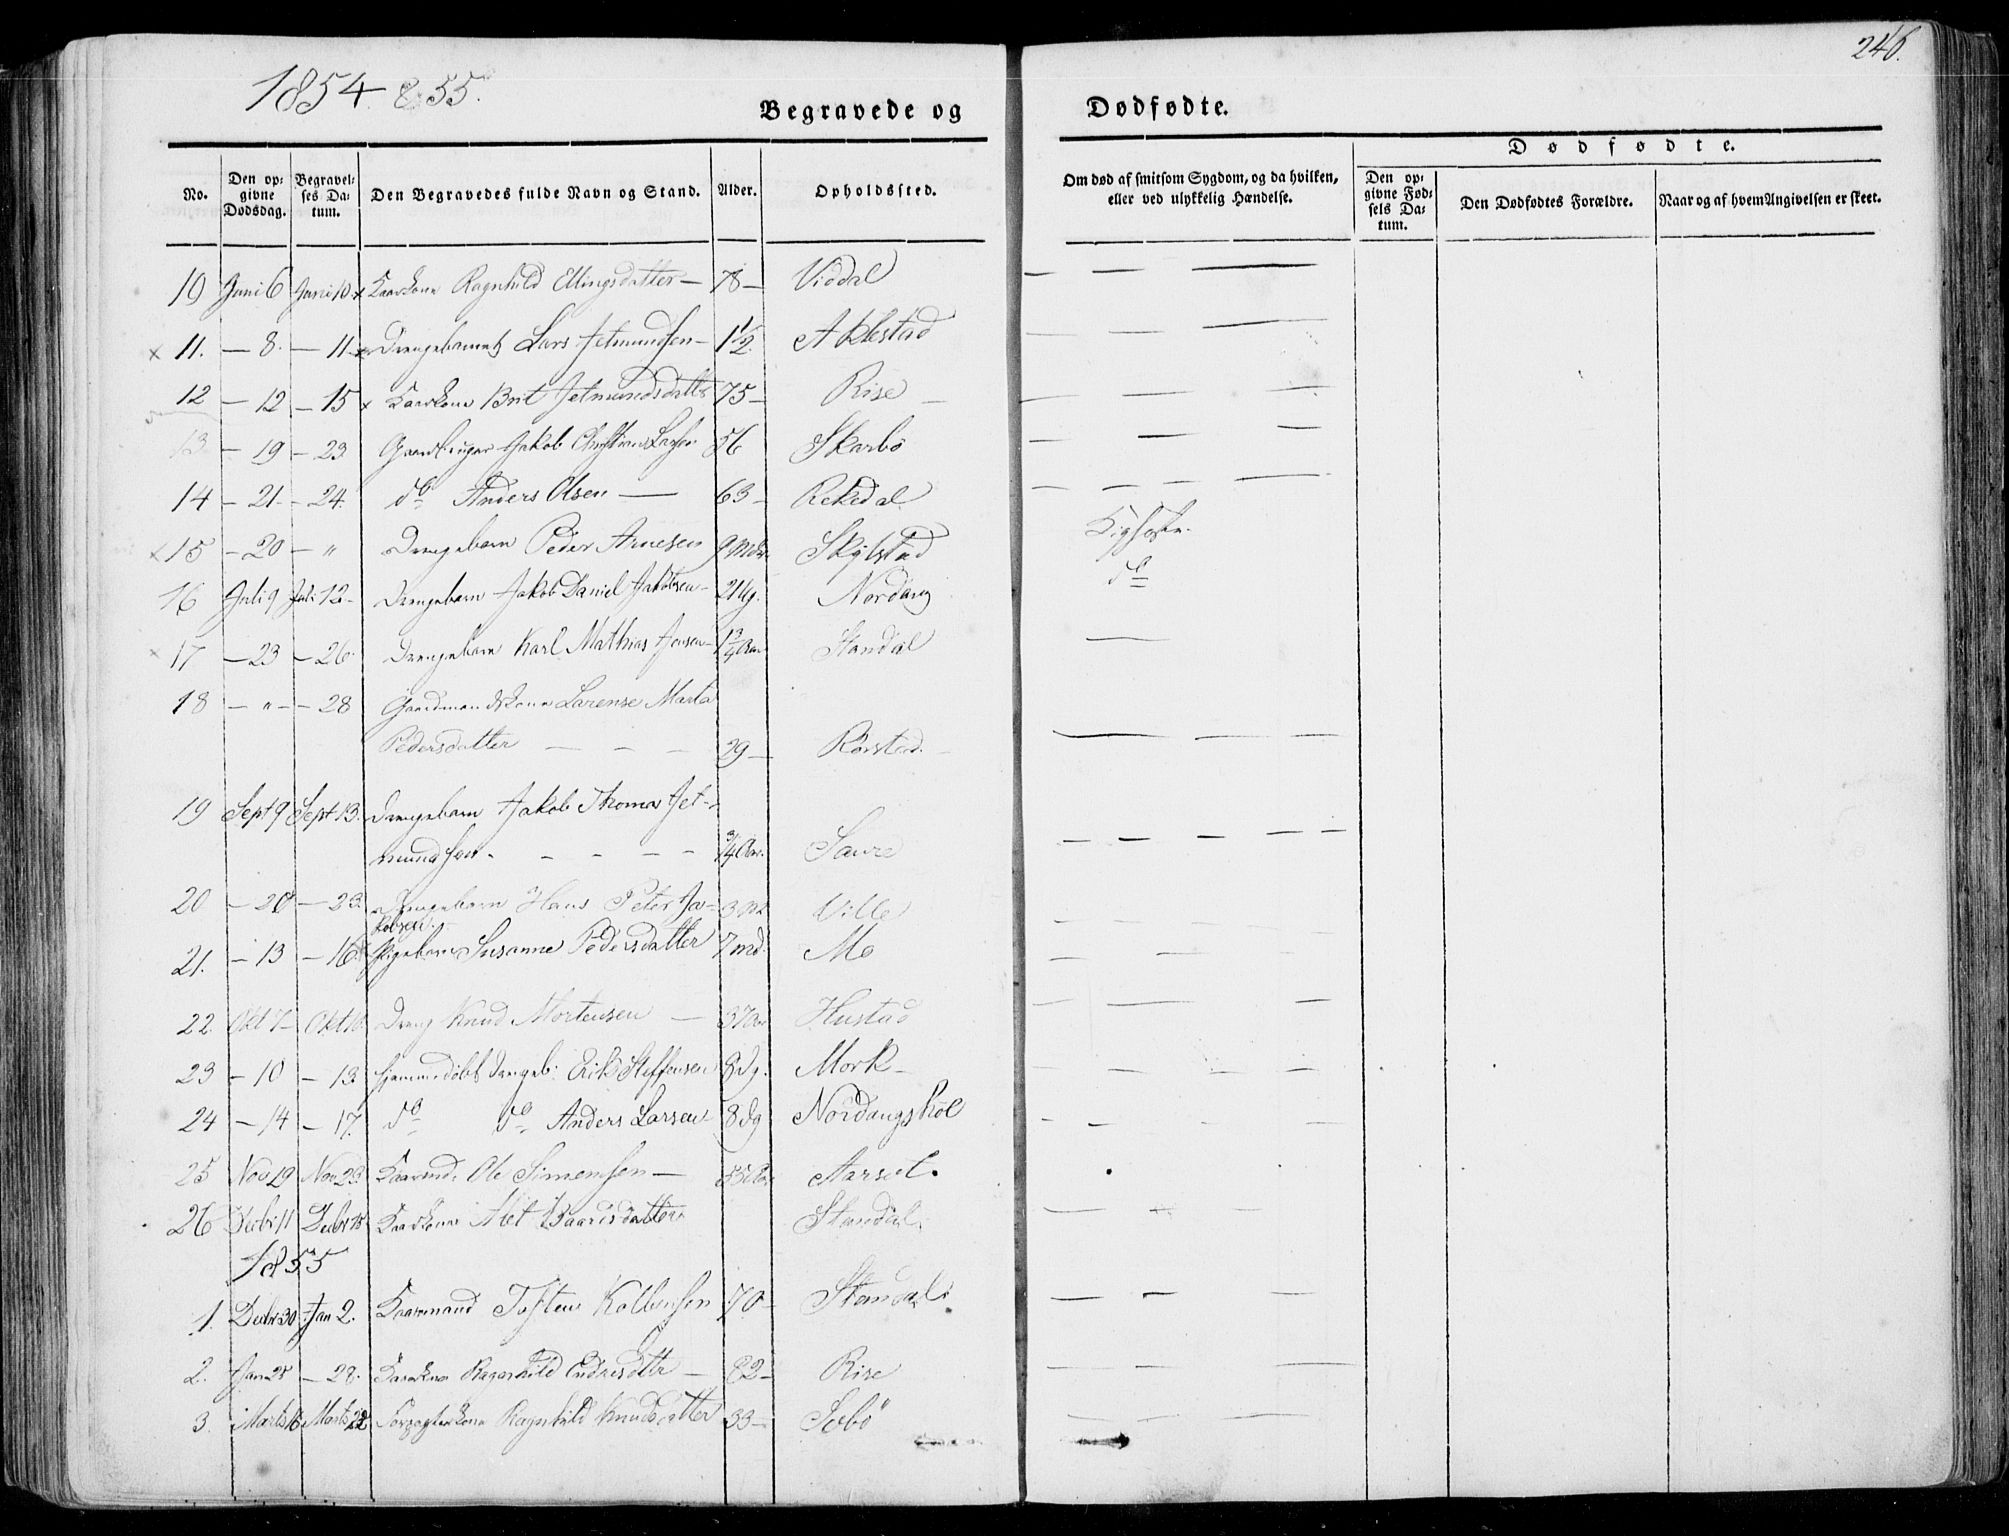 246.
1854 & 55.
Begravede og Dødfødte.
No.
Den opgivne Dødsdag.
Begravelses Datum.
Den Begravedes fulde Navn og Stand.
Alder.
Opholdssted.
Om død af smitsom Sygdom, og da hvilken, eller ved ulykkelig Hændelse.
Dødfødte.
Den opgivne Fødsels Datum.
Den Dødfødtes Forældre.
Naar og af hvem Angivelsen er skeet.
10 Juni 6 Juni 10 x Kaarkone Ragnhild Ellingsdatter — 78 — Viddal
x 11. — 8. — 11 x Drengebarnet Lars Jetmundsen — 1 1/2 Aklestad
12 — 12 — 15 x Kaarkone Brit Jetmundsdatter 75 — Rise
13 — 19 — 23 Gaardbruger Jakob Christian Larsen 56 Skarbø
14 — 21 — 24 do Anders Olsen — 63 — Rekedal
x 15 — 20 — " Drengebarn Peder Arnesen 9 Mdr. Skylstad Kighoste.
16 Juli 9 Juli 12 — Drengebarn Jakob Daniel Jakobsen — Nordang do
x 17 — 23 — 26 Drengebarn Karl Mathias Jensen — Standal
18 — " — 28 Gaardmandskone Larense Marta
Pedersdatter — — — 29 — Rørstad.
19 Sept 9 Sept 13. Drengebarn Jakob Thomas Jet-
mundsen. — — — — 3/4 Aar. Saure
20 — 20 — 23. Drengebarn Hans Peter Ja- 3 M. Ville
kobsen.
21. — 13 — 16 Pigebarn Susanne Pedersdatter 7 md. Mo
22. Okt 7 — Okt 10. Dreng Knud Mortensen — Hustad
23 — 10 — 13 hjemmedøbt Drengeb: Erik Steffensen 8 dg. Mork —
24 — 14 — 17. do do Anders Larsen 8 dg Nordangshol
25 Nov 19 Nov 23. Kaarmd. Ole Simensen — Aarset.
26 Decbr 11 Decbr 15 Kaarkone Alet Baardsdatter Standal.
1855
1. Decbr 30 Jan 2. Kaarmand Tosten Kolbensen 70 — Standal.
2. Jan 25 — 28. Kaarkone Ragnhild Endresdtr — 82 — Rise
3. Marts 16 Marts 22 Forpagterkone Ragnhild Knudsdatter 33 — Sæbø